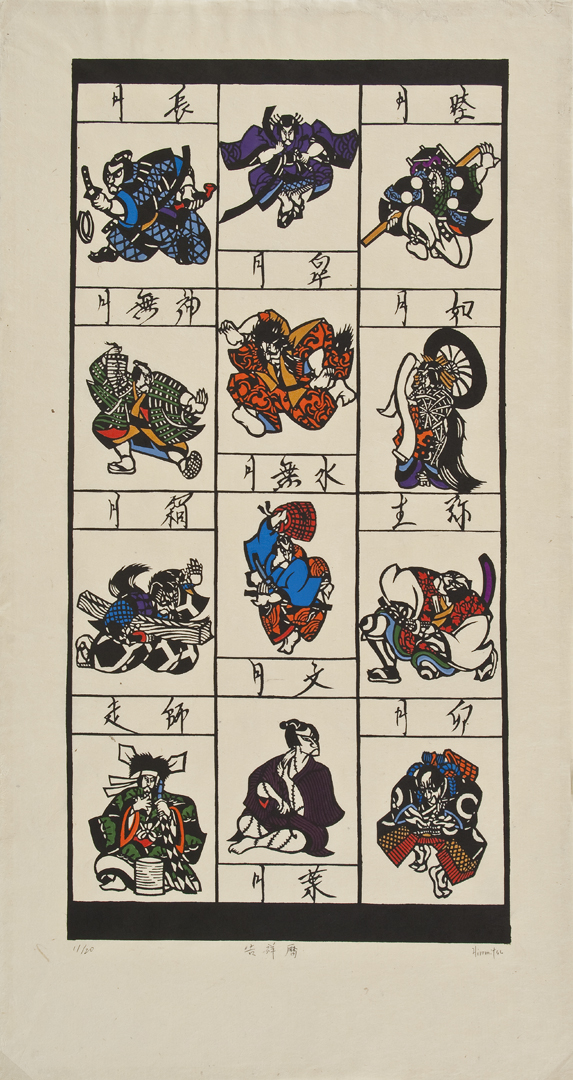 睦月
如月
弥生
卯月
皐月
水無月
文月
葉月
長月
神無月
霜月
師走
11/20
吉祥暦
Hiromitsu